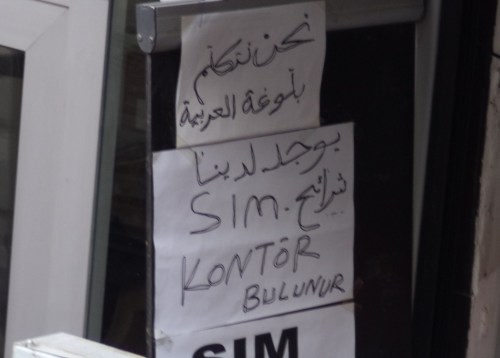 نحن نتكلم
بلوغة العربية
يوجد لدينا
شرائح SIM.
KONTÖR
BULUNUR
SIM